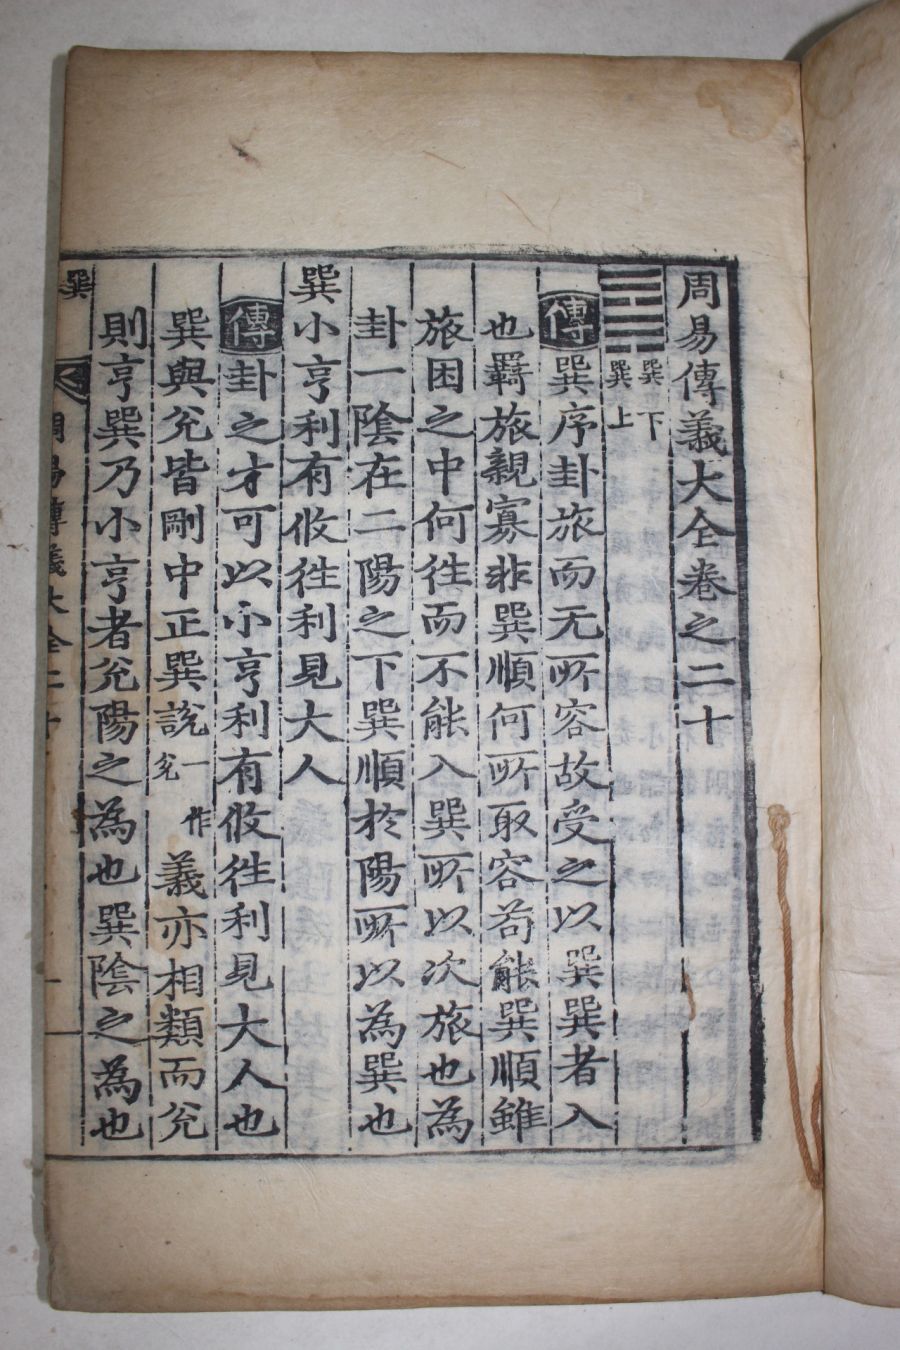 周易傳義大全卷之二十
巽下
巽上
傳巽序卦旅而无所容故受之以巽巽者入
也羇旅親寡非巽順何所取容苟能巽順雖
旅困之中何往而不能入巽所以次旅也為
卦一陰在二陽之下巽順於陽所以為巽也
巽小亨利有攸往利見大人
傳卦之才可以小亨利有攸往利見大人也
巽與兊皆剛中正巽說一作兊義亦相類而兊
則亨巽乃小亨者兊陽之為也巽陰之為也
巽 周易傳義大全二十 一